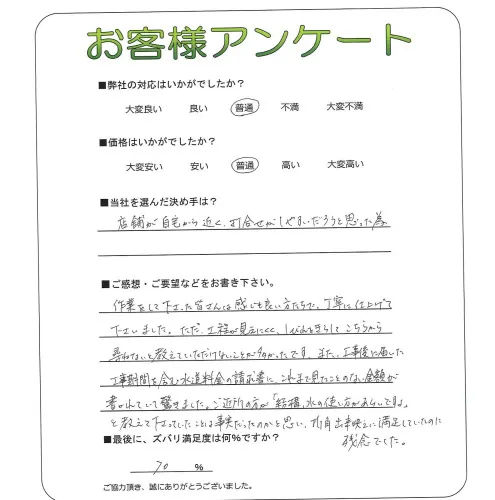 お客様アンケート
■弊社の対応はいかがでしたか？
大変良い 良い 普通 不満 大変不満
■価格はいかがでしたか？
大変安い 安い 普通 高い 大変高い
■当社を選んだ決め手は？
店舗が自宅から近く、打合せがしやすいだろうと思った為
■ご感想・ご要望などをお書き下さい。
作業をして下さった皆さんは感じも良い方たちで、丁寧に仕上げて
下さいました。ただ、工程が見えにくく、こちらから
尋ねないと教えていただけないことが多かったです。また、工事後に届いた
工事期間を含む水道料金の請求書に、これまで見たことのない金額が
書かれていて驚きました。ご近所の方が「結構、水の使い方があらいですよ」
と教えて下さっていたことは事実だったのかと思い、出来映えに満足していたのに
残念でした。
■最後に、ズバリ満足度は何%ですか？
70 %
ご協力頂き、誠にありがとうございました。